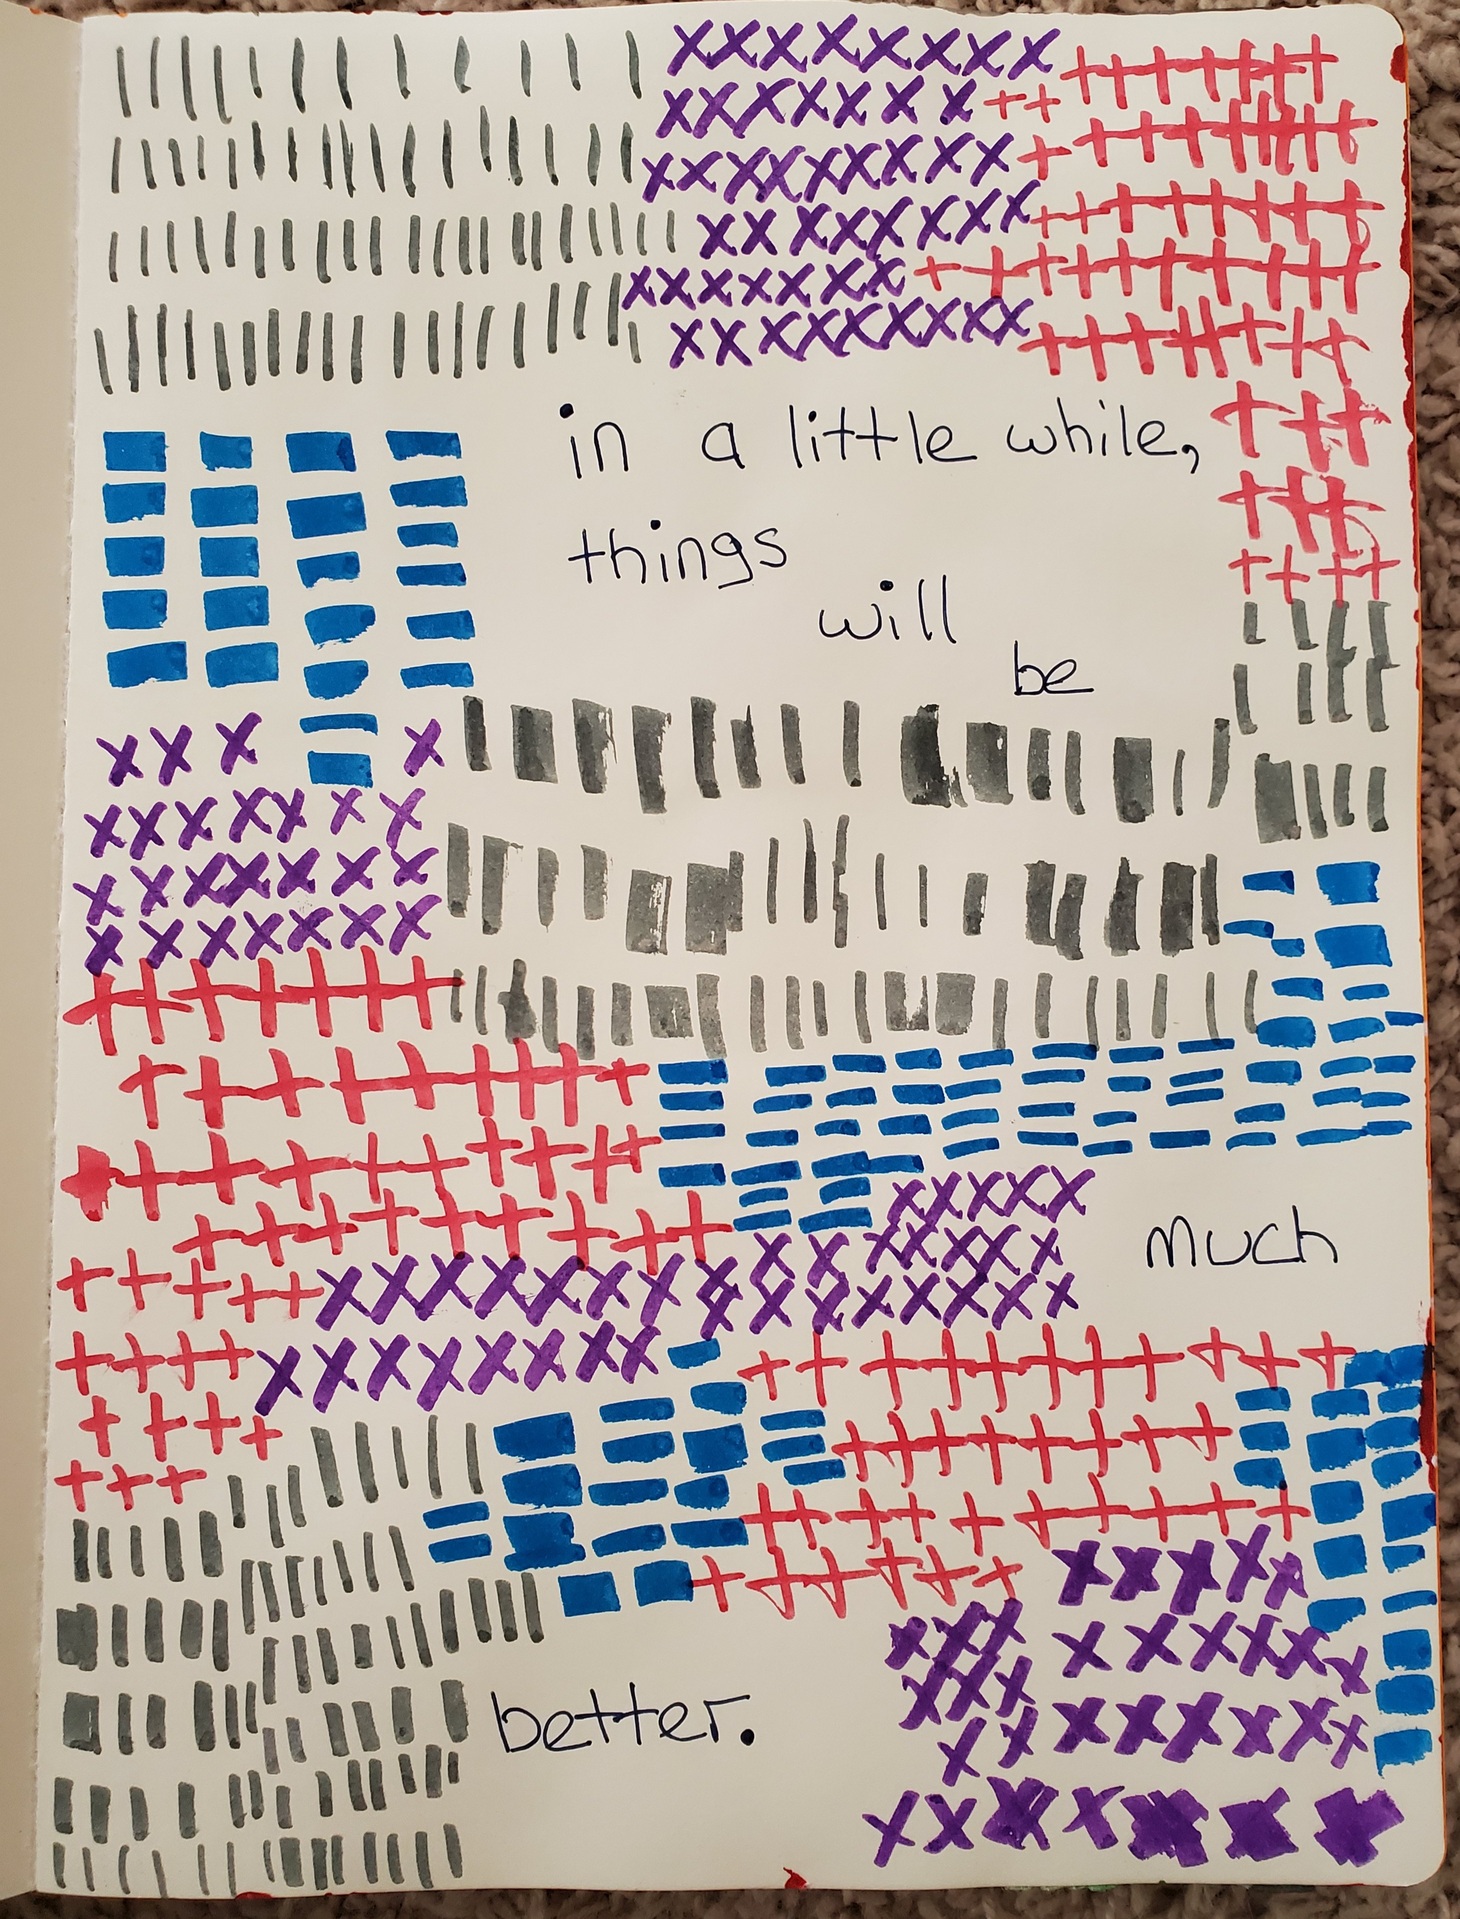 in a little while,
things
will
be
much
better.